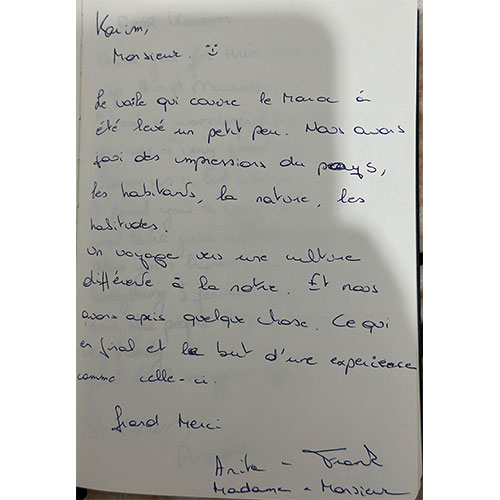 Karim,
Monsieur. :)
Le voile qui couvre le Maroc à
été levé un petit peu. Nous avons
des impressions du pays,
les habitants, la nature, les
habitudes.
Un voyage vers une culture
différente à la notre. Et nous
avons apris quelque chose. Ce qui
en final et le but d'une experience
comme celle-ci.
Grand Merci
Anita - Frank
Madame - Monsieur